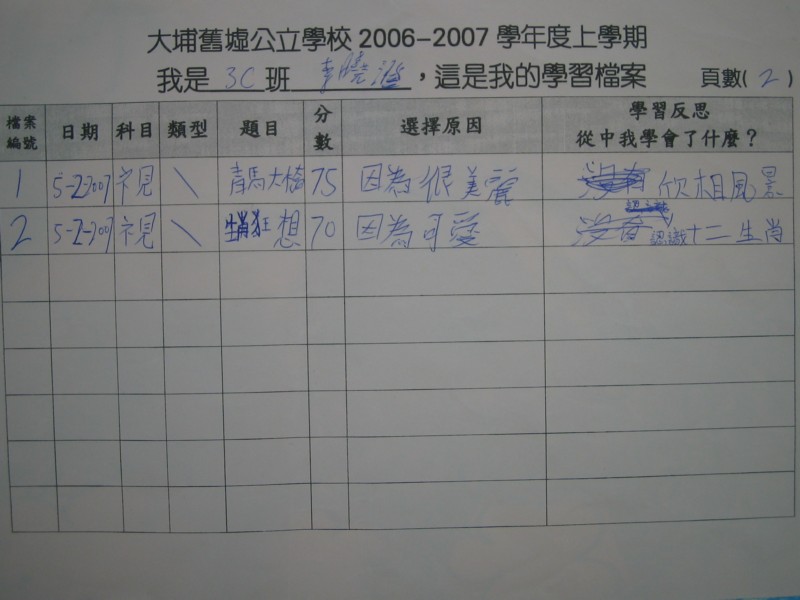 大埔舊墟公立學校 2006-2007 學年度上學期
我是 3C 班 李曉瀅，這是我的學習檔案 頁數( 2 )
檔案編號 日期 科目 類型 題目 分數 選擇原因 學習反思 從中我學會了什麼？
1 5-2-2007 視 \ 青馬大橋 75 因為很美麗 欣相風景
2 5-2-2007 視 \ 生肖狂想 70 因為可愛 認識十二生肖